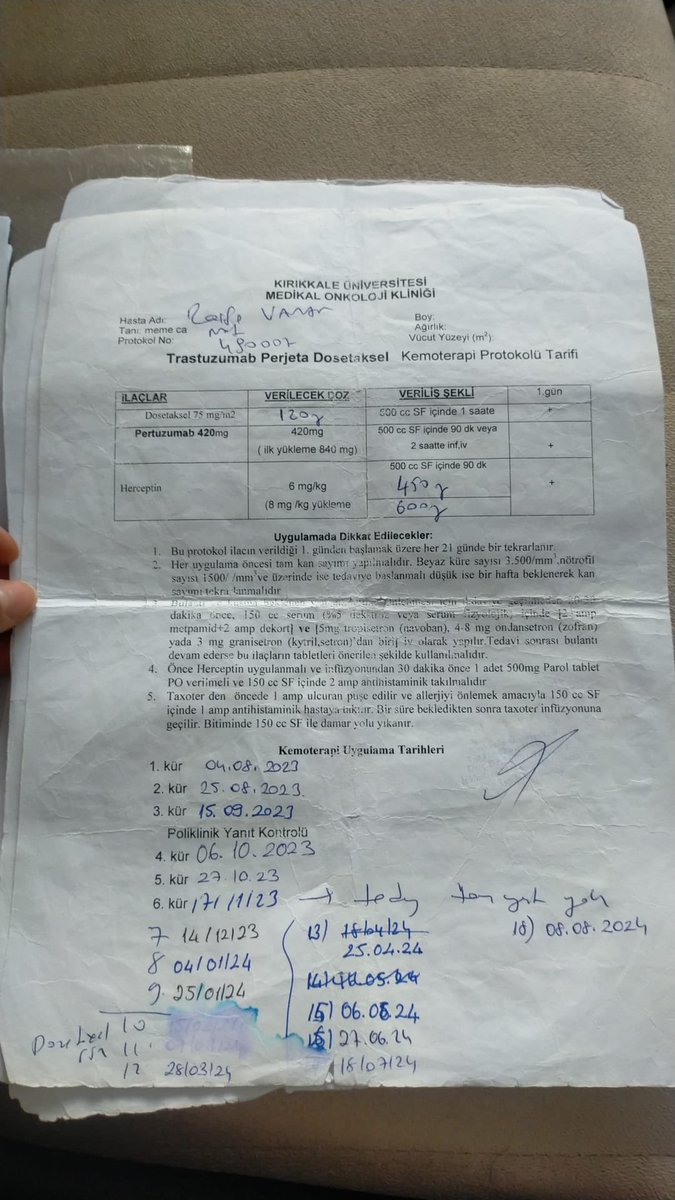 KIRIKKALE ÜNİVERSİTESİ
MEDİKAL ONKOLOJİ KLİNİĞİ
Hasta Adı:
Tanı: meme ca
Protokol No:
Boy:
Ağırlık:
Vücut Yüzeyi (m²):
Trastuzumab Perjeta Dosetaksel Kemoterapi Protokolü Tarifi
İLAÇLAR VERİLECEK DOZ VERİLİŞ ŞEKLİ 1.gün
Dosetaksel 75 mg/m2 120 500 cc SF içinde 1 saatte +
Pertuzumab 420mg 420mg 500 cc SF içinde 90 dk veya
( ilk yükleme 840 mg) 2 saatte inf,iv +
500 cc SF içinde 90 dk
Herceptin 6 mg/kg 450 +
(8 mg /kg yükleme 600
Uygulamada Dikkat Edilecekler:
1. Bu protokol ilacın verildiği 1. günden başlamak üzere her 21 günde bir tekrarlanır.
2. Her uygulama öncesi tam kan sayımı yapılmalıdır. Beyaz küre sayısı 3.500/mm³,nötrofil
sayısı 1500/ /mm³ve üzerinde ise tedaviye başlanmalı düşük ise bir hafta beklenerek kan
sayımı tekrarlanmalıdır
dakika önce, 150 cc serum (%5 dekstroz veya serum fizyolojik) içinde [2 amp
metpamid+2 amp dekort] ve [5mg tropisetron (navoban), 4-8 mg ondansetron (zofran)
yada 3 mg granisetron (kytril,setron)'dan biri] iv olarak yapılır.Tedavi sonrası bulantı
devam ederse bu ilaçların tabletleri önerilen şekilde kullanılmalıdır.
4. Önce Herceptin uygulanmalı ve infüzyonundan 30 dakika önce 1 adet 500mg Parol tablet
PO verilmeli ve 150 cc SF içinde 2 amp antihistaminik takılmalıdır
5. Taxoter den öncede 1 amp ulcuran puşe edilir ve allerjiyi önlemek amacıyla 150 cc SF
içinde 1 amp antihistaminik hastaya takılır. Bir süre bekledikten sonra taxoter infüzyonuna
geçilir. Bitiminde 150 cc SF ile damar yolu yıkanır.
Kemoterapi Uygulama Tarihleri
1. kür 04.08.2023
2. kür 25.08.2023
3. kür 15.09.2023
Poliklinik Yanıt Kontrolü
4. kür 06.10.2023
5. kür 27.10.23
6. kür 17/11/23
7 14/12/23
8 04/01/24
9. 25/01/24
10
11
12 28/03/24
13) 18/04/24
25.04.24
15) 06.06.24
27.06.24
18/07/24
18) 08.08.2024